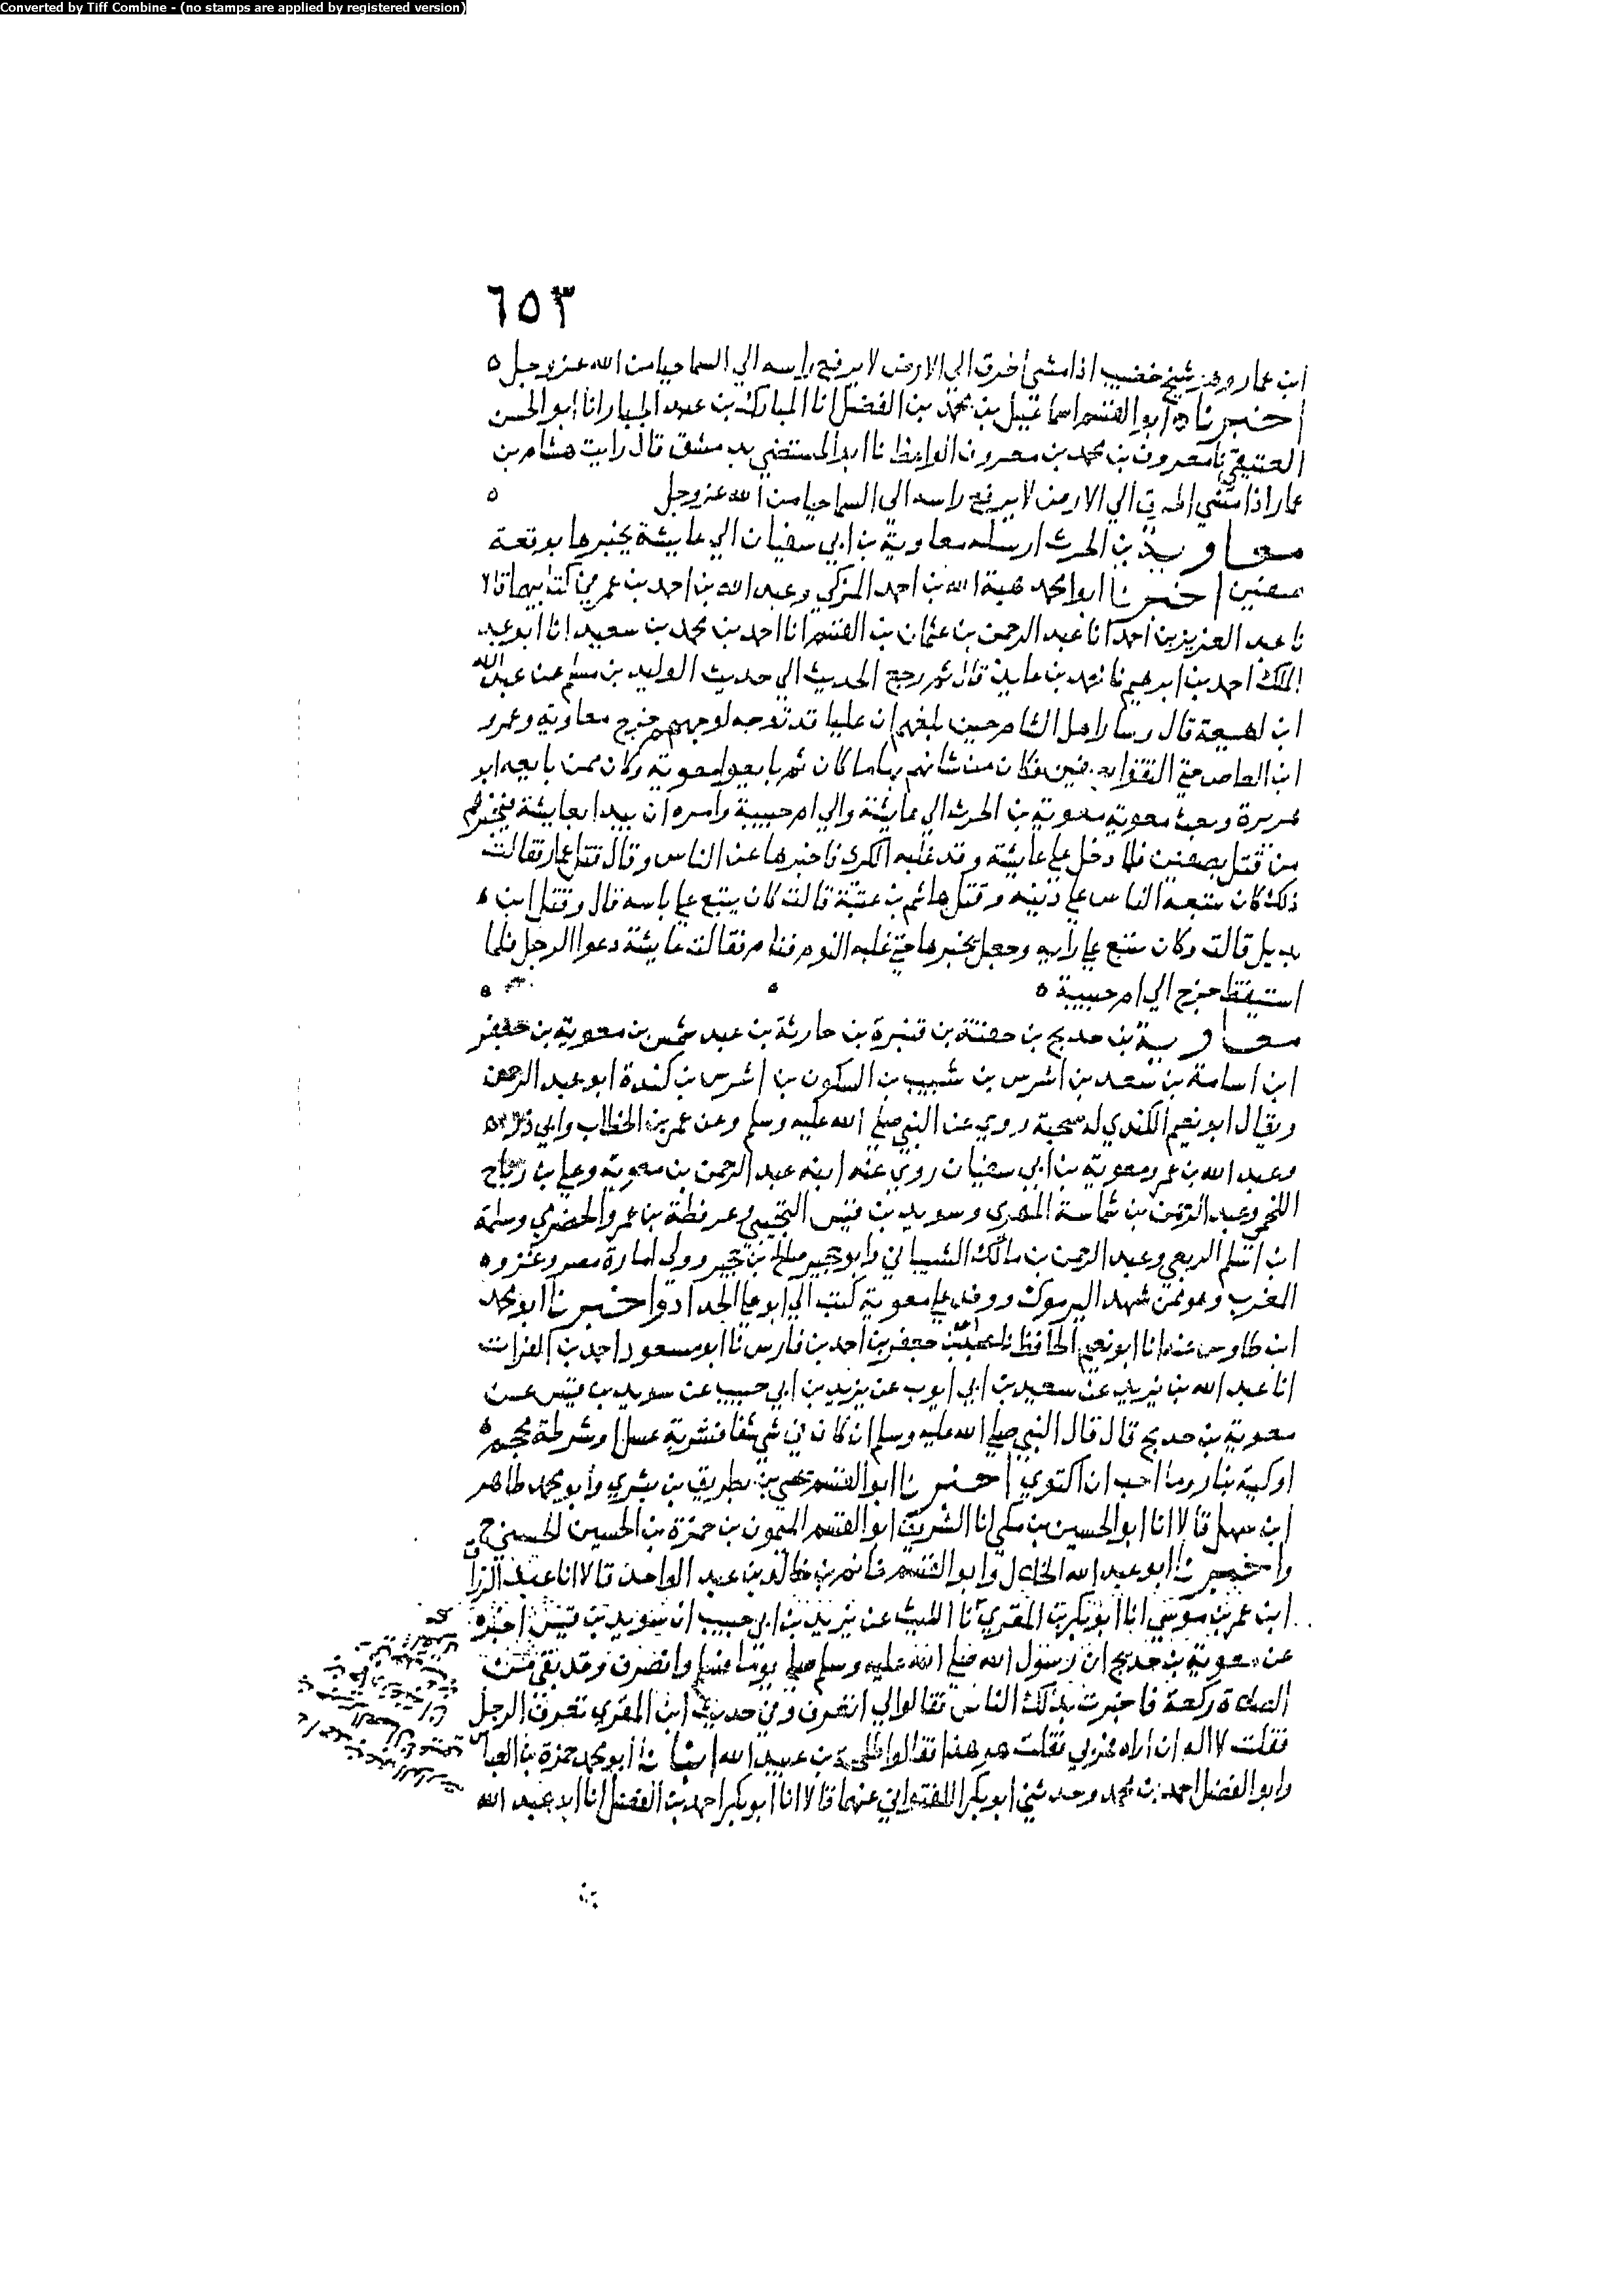 Converted by Tiff Combine - (no stamps are applied by registered version)
٦٥٣
ابن عمار وهو شيخ خضيب اذا مشى اطرق الي الارض لا يرفع راسه الي السما حيا من الله عز وجل ه
اخبرناه ابو القسم اسماعيل بن محمد بن الفضل انا المبارك بن عبد الجبار انا ابو الحسن
العتيقي نا معروف بن محمد بن معروف الواعظ نا ابو المستضي بدمشق قال رايت هشام بن
عمار اذا مشي اطرق الي الارض لا يرفع راسه الى السما حيا من الله عز وجل ه
معاوية بن الحرث ارسله معاوية بن ابي سفيان الي عايشة يخبرها بوقعة
صفين اخبرنا ابو محمد هبة الله بن احمد المزكي وعبد الله بن احمد بن عمر في كتابيهما قالا
نا عبد العزيز بن احمد انا عبد الرحمن بن عثمان بن القسم انا احمد بن محمد بن سعيد انا ابو عبد
الملك احمد بن ابرهيم نا محمد بن عايذ قال ثم رجع الحديث الي حديث الوليد بن مسلم عن عبد الله
ابن لهيعة قال وسار اهل الشام حين بلغهم ان عليا قد توجه لوجههم خرج معاوية وعمرو
ابن العاص حتى التقوا بصفين فكان من شانهم بها ما كان ثم بايعوا معوية وكان ممن بايعه ابو
هريرة وبعث معوية معوية بن الحرث الي عايشة والي ام حبيبة وامره ان يبدا بعايشة فيخبرهم
من قتل بصفين فلما دخل علي عايشة وقد غلبه الكرى فاخبرها عن الناس وقال قتل عمار فقالت
ذلك كان يتبعه الناس علي دينه وقتل هاشم بن عتبة قالت كان يتبع علي باسه قال وقتل ابن ه
بديل قالت وكان يتبع علي رايه وجعل يخبرها حتى غلبه النوم فنام فقالت عايشة دعوا الرجل فلما
استيقظ خرج الي ام حبيبة ه
معاوية بن حديج بن جفنة بن قنبرة بن حارثة بن عبد شمس بن معوية بن جعفر
ابن اسامة بن سعد بن اشرس بن شبيب بن السكون بن اشرس بن كندة ابو عبد الرحمن
ويقال ابو نعيم الكندي له صحبة روي عن النبي صلى الله عليه وسلم وعن عمر بن الخطاب وابي ذر
وعبد الله بن عمرو ومعوية بن ابي سفيان روي عنه ابنه عبد الرحمن بن معوية وعلي بن رباح
اللخمي وعبد الرحمن بن شماسة المهري وسويد بن قيس التجيبي وعرفطة بن عمرو الحضرمي وسلمة
ابن اسلم الربعي وعبد الرحمن بن مالك الشيباني وابو حجير صالح بن حجير وولي امارة مصر وغزو ه
المغرب وهو ممن شهد اليرموك ووفد علي معوية كتب الي ابو علي الحداد واخبرنا ابو محمد
ابن طاوس عنه انا ابو نعيم الحافظ نا عبد الله بن جعفر بن احمد بن فارس نا ابو مسعود احمد بن الفرات
انا عبد الله بن يزيد عن سعيد بن ابي ايوب عن يزيد بن ابي حبيب عن سويد بن قيس عن
معوية بن حديج قال قال النبي صلي الله عليه وسلم ان كان في شي شفا فشربة عسل او شرطة محجم
او كية بنار وما احب ان اكتوي اخبرنا ابو القسم يحيى بن بطريق بن بشري وابو محمد طاهر
ابن سهل قالا انا ابو الحسين بن مكي انا الشريف ابو القسم الميمون بن حمزة بن الحسين الحسيني ح
واخبرنا ابو عبد الله الخلال وابو القسم غانم بن خالد بن عبد الواحد قالا انا عبد الرزاق
ابن عمر بن موسي انا ابو بكر بن المقري انا الليث عن يزيد بن ابي حبيب ان سويد بن قيس اخبره
عن معوية بن حديج ان رسول الله صلي الله عليه وسلم صلي يوما فسلم وانصرف وقد بقي من
الصلاة ركعة فاخبرت بذلك الناس فقالوا لي اتعرف وفي حديث ابن المقري تعرف الرجل
فقلت لا الا ان اراه فمر بي فقلت هو هذا فقالوا طلحة بن عبيد الله انبانا ابو محمد حمزة بن العباس
وابو الفضل احمد بن محمد وحدثني ابو بكر اللفتواني عنهما قالا انا ابو بكر احمد بن الفضل انا ابو عبد الله